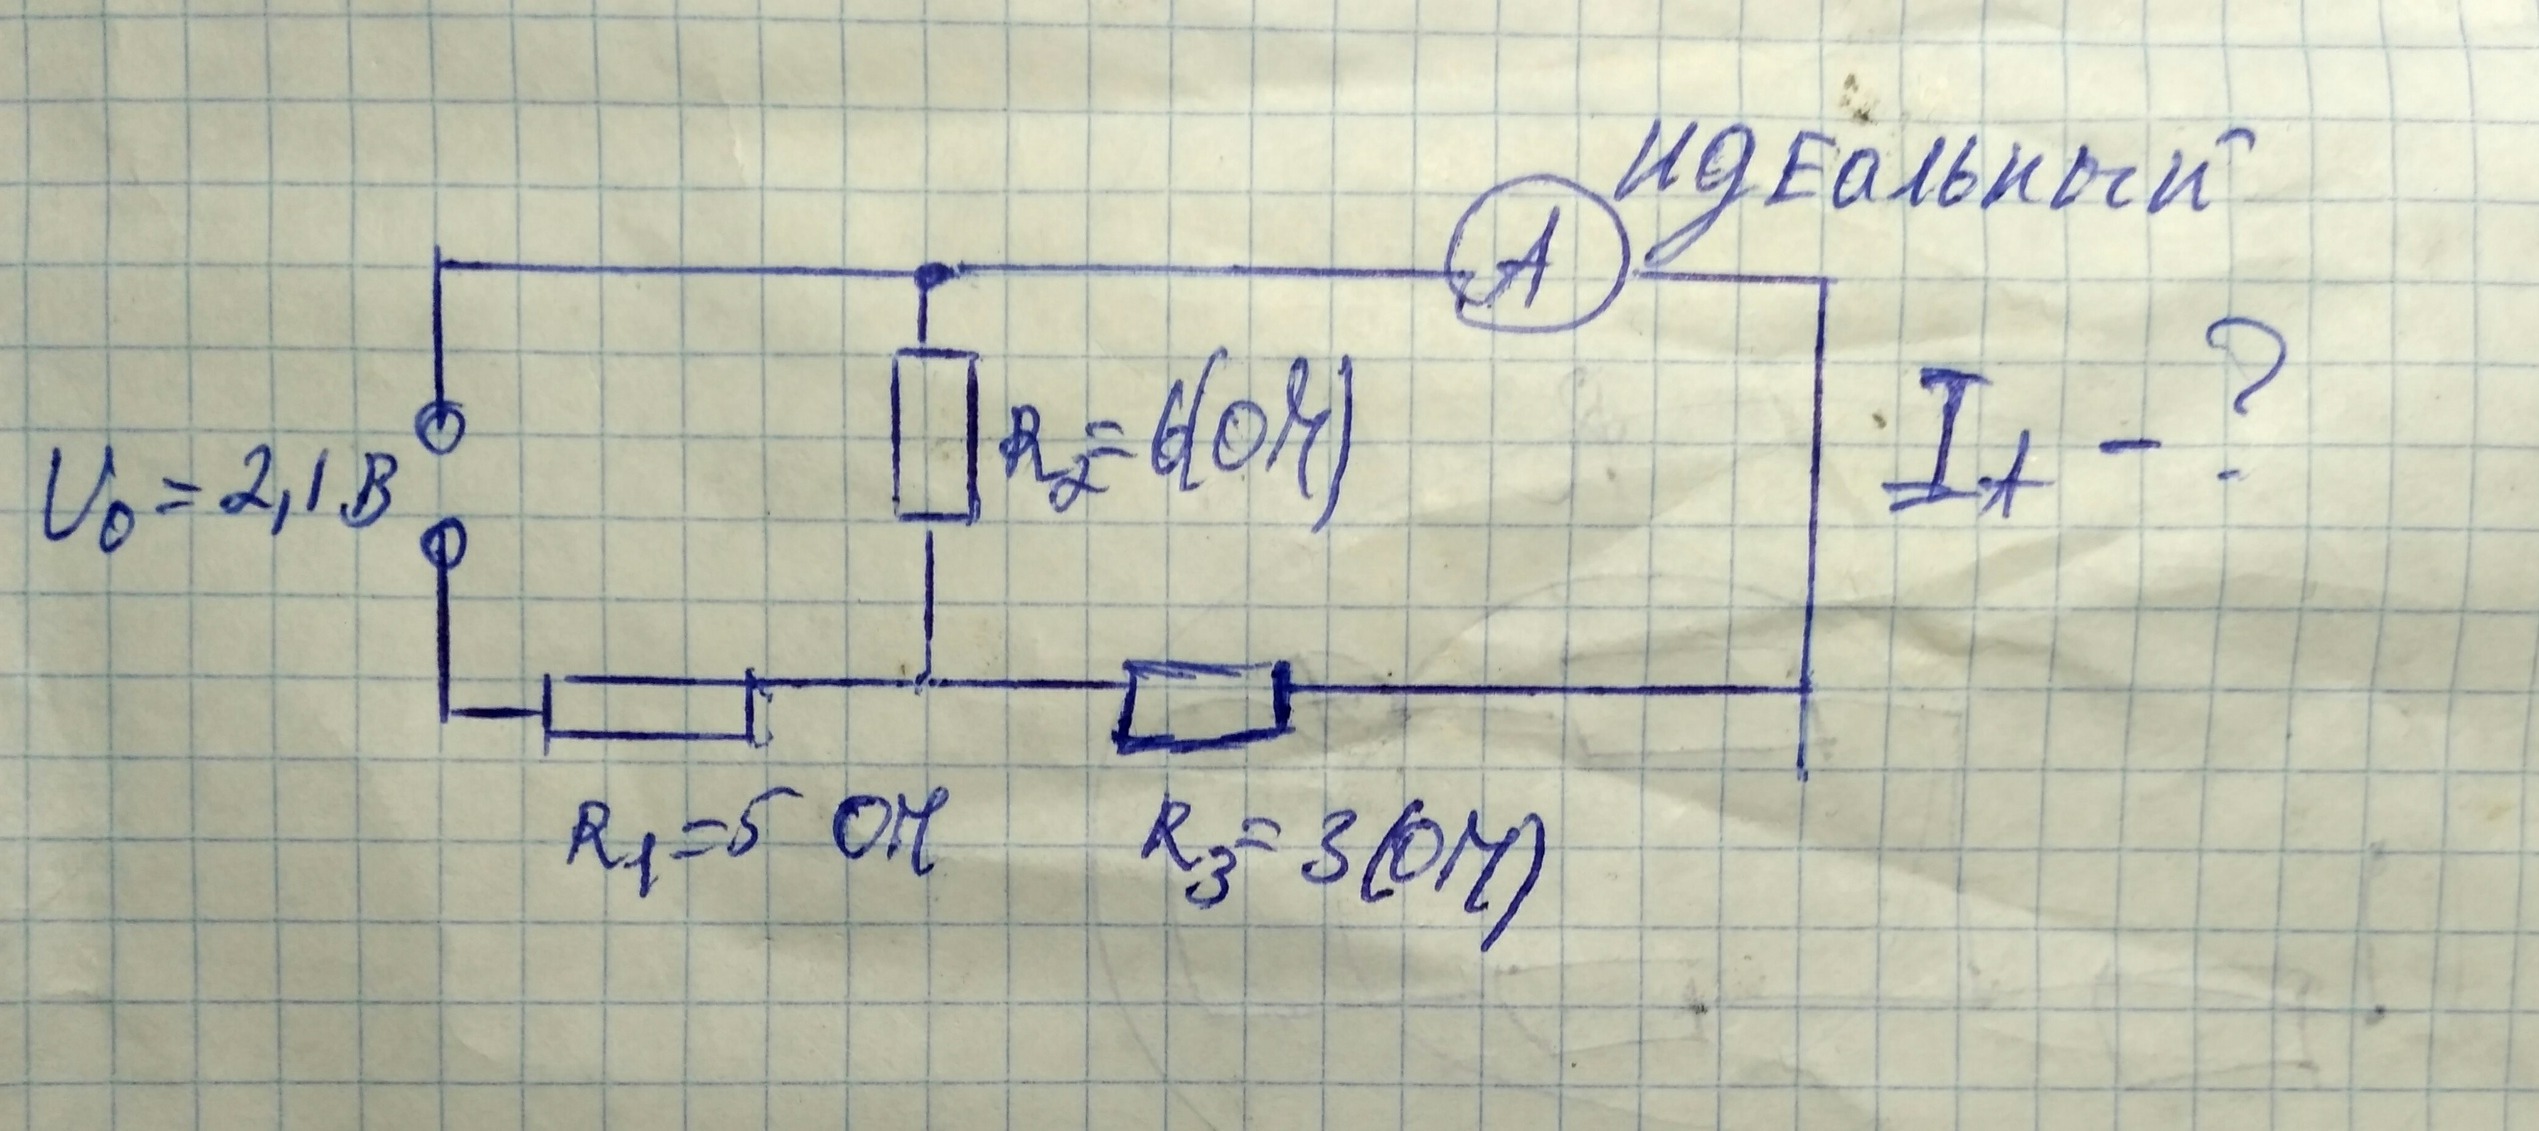 идеальный
A
I_A - ?
U₀ = 2,1 В
R₂ = 6(Ом)
R₁ = 5 Ом
R₃ = 3(Ом)